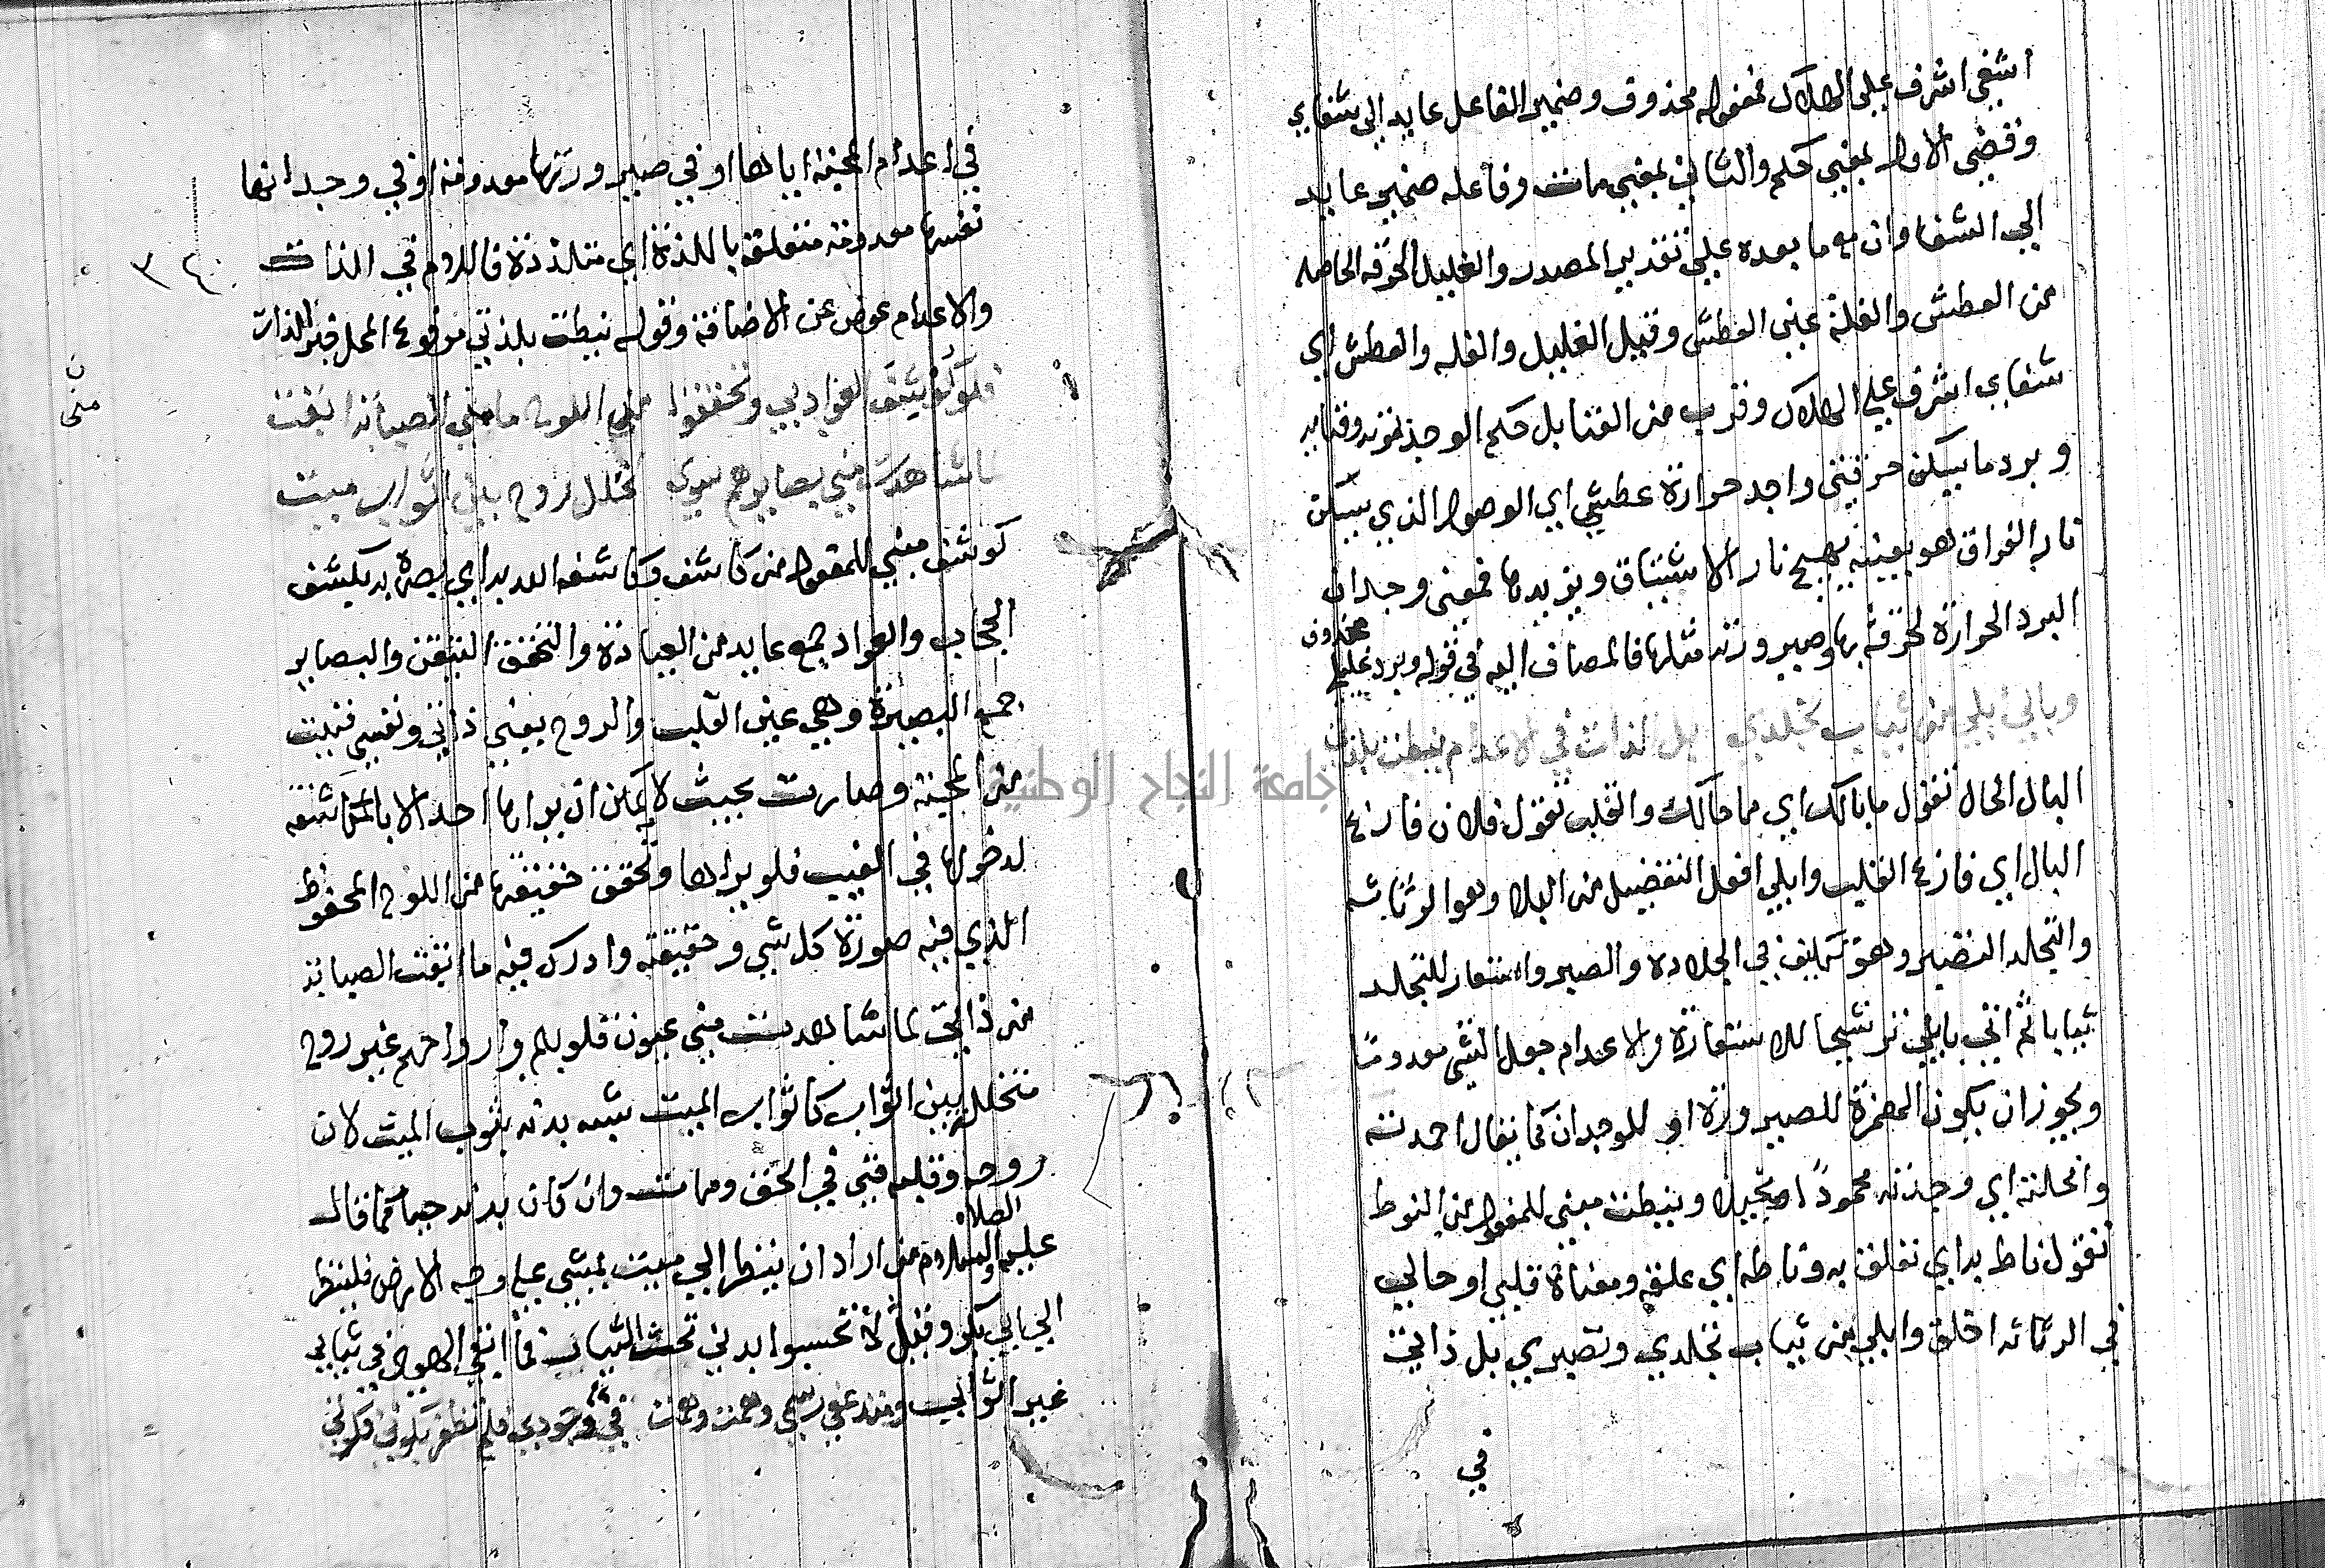 اشفي اشرف علي الهلاك فمفعوله محذوف وضمير الفاعل عايد الي شفاي
وقضي الاول بمعني حكم والثاني بمعني مات وفاعله ضمير عايد
الي الشفا وان مع ما بعده علي تقدير المصدر والغليل الحرقه الحاصله
من العطش والغلة عين العطش وقيل الغليل والغله والعطش اي
شفاي اشرف علي الهلاك وقرب من الفنا بل حكم الوجد بموته وفنايه
وبرد ما يسكن حرقتي واجد حرارة عطشي اي الوصول الذي يسكن
نار الفراق هو بعينه يهيج نار الاشتياق ويزيدها فمعني وجدان
البرد الحرارة لحرقة بها وصيرورته مثلها فالمضاف اليه في قوله وبرد غليلي
محذوف
وبالي ابلي من ثياب تجلدي بل الذات في الاعدام نيطت بلذتي
البال الحال تقول ما بالك اي ما حالك والقلب تقول فلان فارغ
البال اي فارغ القلب وابلي افعل التفضيل من البلا وهو الرثاثه
والتجلد التصبر وهو تكليف في الجلاده والصبر واستعار للتجلد
ثيابا ثم اتي بابلي ترشيحا للاستعارة والاعدام جعل الشي معدوما
ويجوز ان يكون الهمزة للصيرورة او للوجدان كما يقال احمدته
وابخلته اي وجدته محمودًا وبخيلا ونيطت مبني للمفعول من النوط
تقول ناط به اي تعلق به وناطه اي علقه ومعناه قلبي او حالي
في الرثاثه اخلق وابلي من ثياب تجلدي وتصبري بل ذاتي
في
في اعدام المحبة اياها او في صيرورتها معدومة او في وجدانها
نفسها معدومة متعلقة باللذة اي متلذذة فاللام في الذات
والاعدام عوض عن الاضافة وقوله نيطت بلذتي مرفوع المحل خبر للذات
فلو كوشف العواد بي وتحققوا من اللوح ما مني الصبابة ابقت
لما شاهدت مني بصايرهم سوي تخلل روح بين اثواب ميت
كوشف مبني للمفعول من كاشف وكاشفه الله به اي بصره به بكشف
الحجاب والعواد جمع عايد من العيادة والتحقق التيقن والبصاير
جمع البصيرة وهي عين القلب والروح يعني ذاتي ونفسي فنيت
من المحبة وصارت بحيث لا يمكن ان يراها احد الا بالمكاشفه
لدخولها في الغيب فلو يراها وتحقق حقيقتها من اللوح المحفوظ
الذي فيه صورة كل شي وحقيقته وادرك فيه ما ابقت الصبابة
من ذاتي لما شاهدت مني عيون قلوبهم وارواحهم غير روح
متخلل بين اثواب كاثواب الميت شبه بدنه بثوب الميت لان
روحه وقلبه فني في الحق ومات وان كان بدنه حيا كما قال
عليه الصلاه والسلام من اراد ان ينظر الي ميت يمشي علي وجه الارض فلينظر
الي ابي بكر وقيل لا تحسبوا بدني تحت الثياب فما ابقي الهوي في ثيابي
غير اثوابي ومنذ عفي رسمي وهمت وهمت في وجودي فلم تظفر بكوني فكرتي
منّي